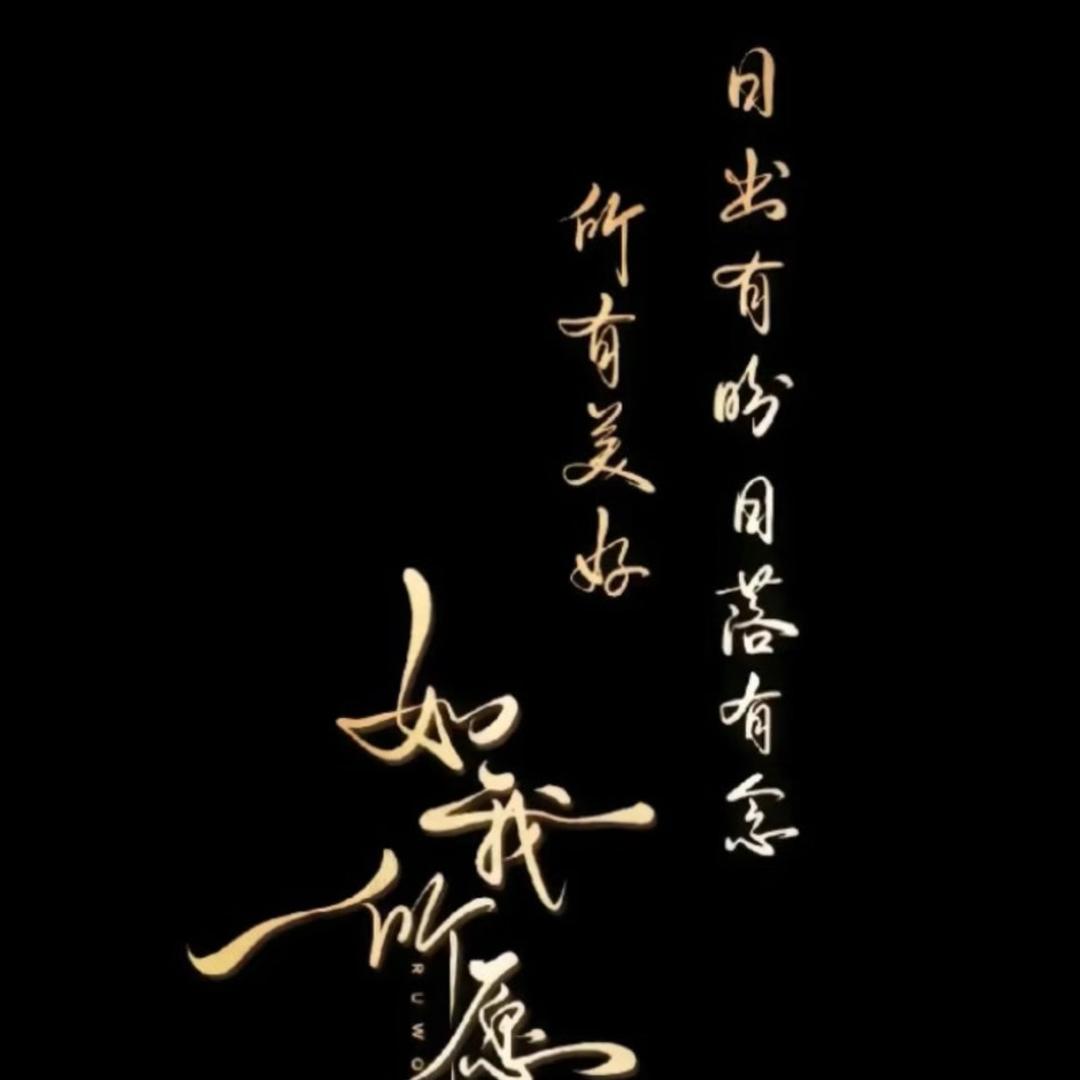 日出有盼 日落有念
所有美好
如我所愿
RUWO